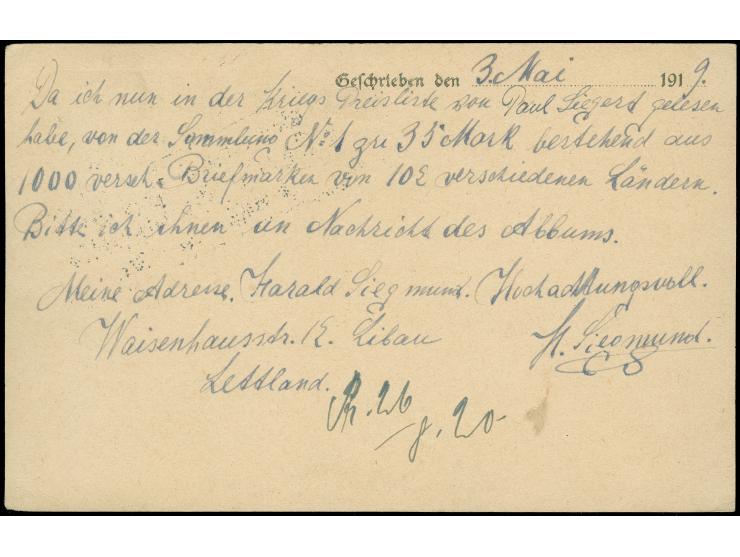 Geschrieben den 3. Mai 1919.
Da ich nun in der Kriegs Preisliste von Paul Siegert gelesen
habe, von der Sammlung No 1 zu 35 Mark bestehend aus
1000 versch. Briefmarken von 102 verschiedenen Ländern.
Bitte ich ihnen un Nachricht des Albums.
Meine Adresse. Harald Siegmund. Hochachtungsvoll.
Waisenhausstr. 12. Libau H. Siegmund.
Lettland.
26
20